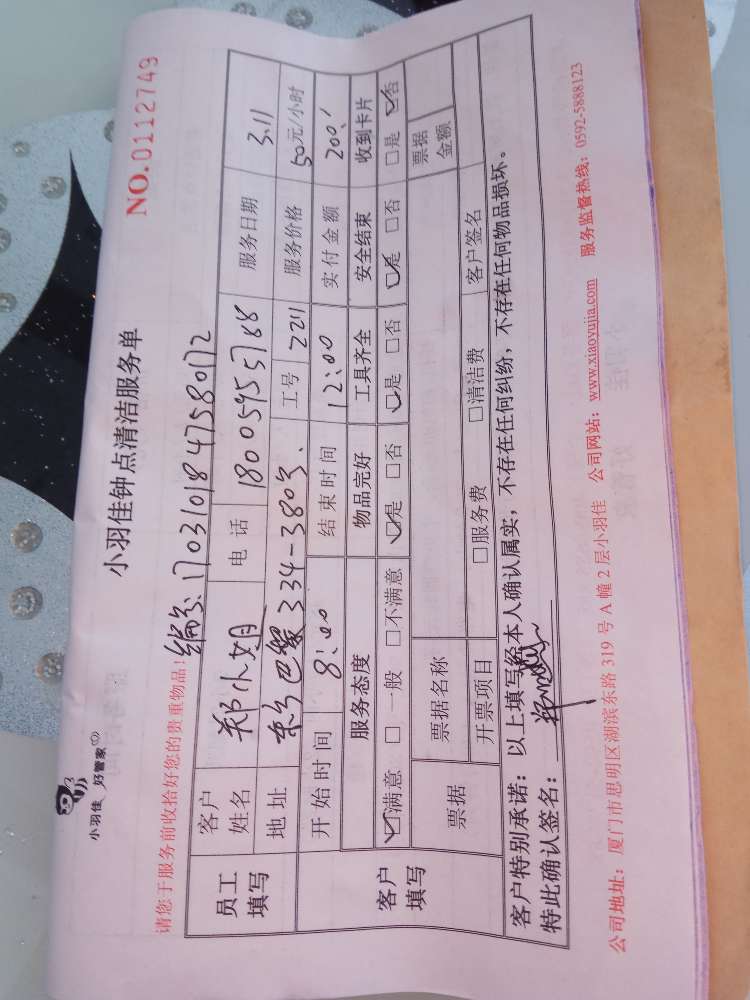 小羽佳 好管家
小羽佳钟点清洁服务单
NO.0112749
请您于服务前收拾好您的贵重物品!
编号:1703101847580172
员工填写
客户姓名 郑小姐 电话 18005955788 服务日期 3.11
地址 334-3803 工号 2211 服务价格 50元/小时
开始时间 8:00 结束时间 12:00 实付金额 200
客户填写
服务态度 物品完好 工具齐全 安全结束 收到卡片
☑满意 □一般 □不满意 ☑是 □否 ☑是 □否 ☑是 □否 □是 ☑否
票据 票据名称 票据金额
开票项目 □服务费 □清洁费 客户签名
客户特别承诺:以上填写经本人确认属实,不存在任何纠纷,不存在任何物品损坏。
特此确认签名:
公司地址:厦门市思明区湖滨东路319号A幢2层小羽佳 公司网站:www.xiaoyujia.com 服务监督热线:0592-5888123